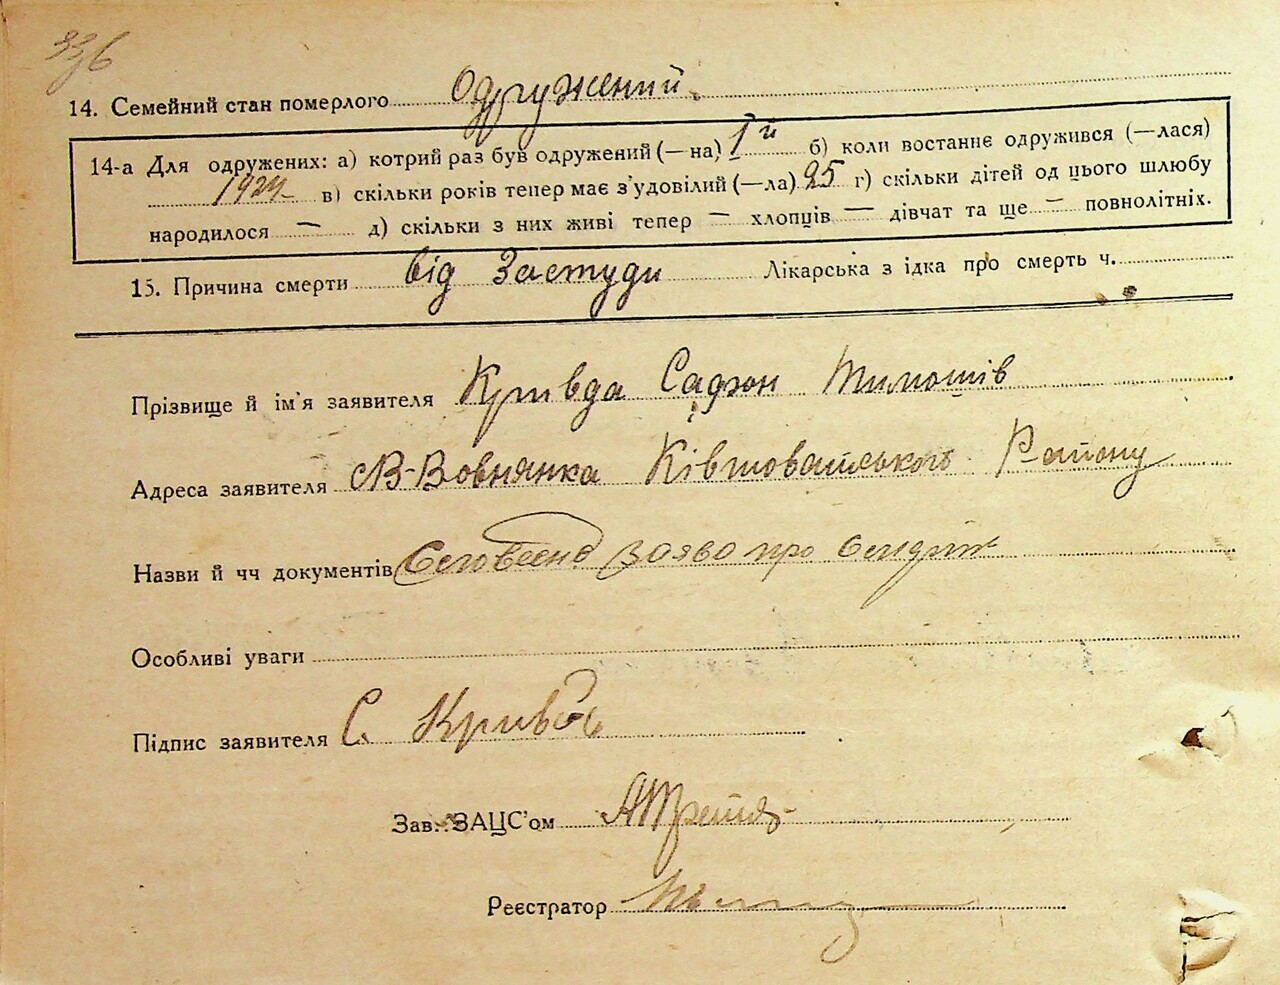 336
14. Семейний стан померлого Одружений.
14-а Для одружених: а) котрий раз був одружений (—на) 1й б) коли востаннє одружився (—лася)
1924 в) скільки років тепер має з'удовілий (—ла) 25 г) скільки дітей од цього шлюбу
народилося — д) скільки з них живі тепер — хлопців — дівчат та ще — повнолітніх.
15. Причина смерти від Застуди Лікарська з ідка про смерть ч.
Прізвище й ім'я заявителя Кривда Сафон Тимошів
Адреса заявителя В-Вовнянка Району
Назви й чч документів заява про
Особливі уваги
Підпис заявителя С. Кривда
Зав. ЗАЦС'ом
Реєстратор